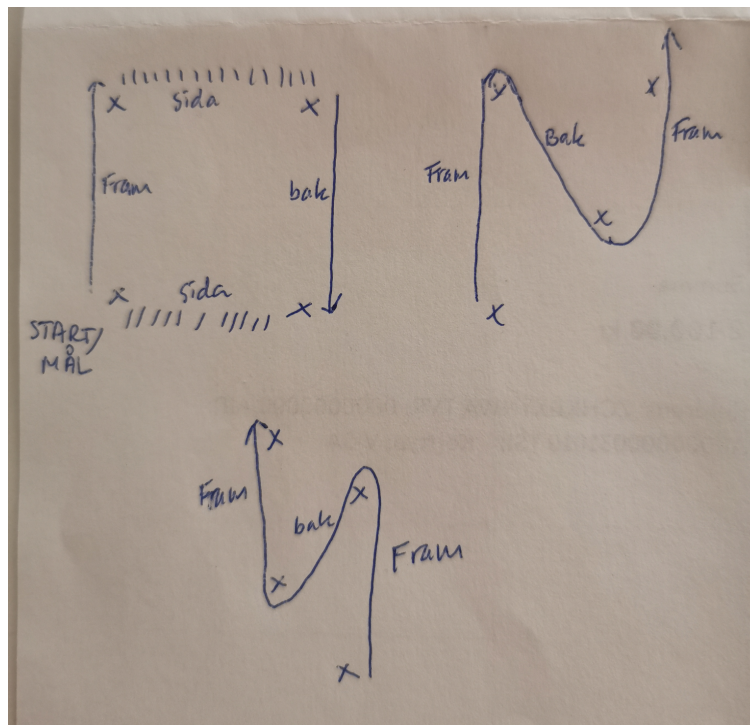 sida
X
X
Fram
bak
X
sida
X
START/
MÅL
X
X
Fram
Bak
Fram
X
X
X
Fram
bak
X
Fram
X
X